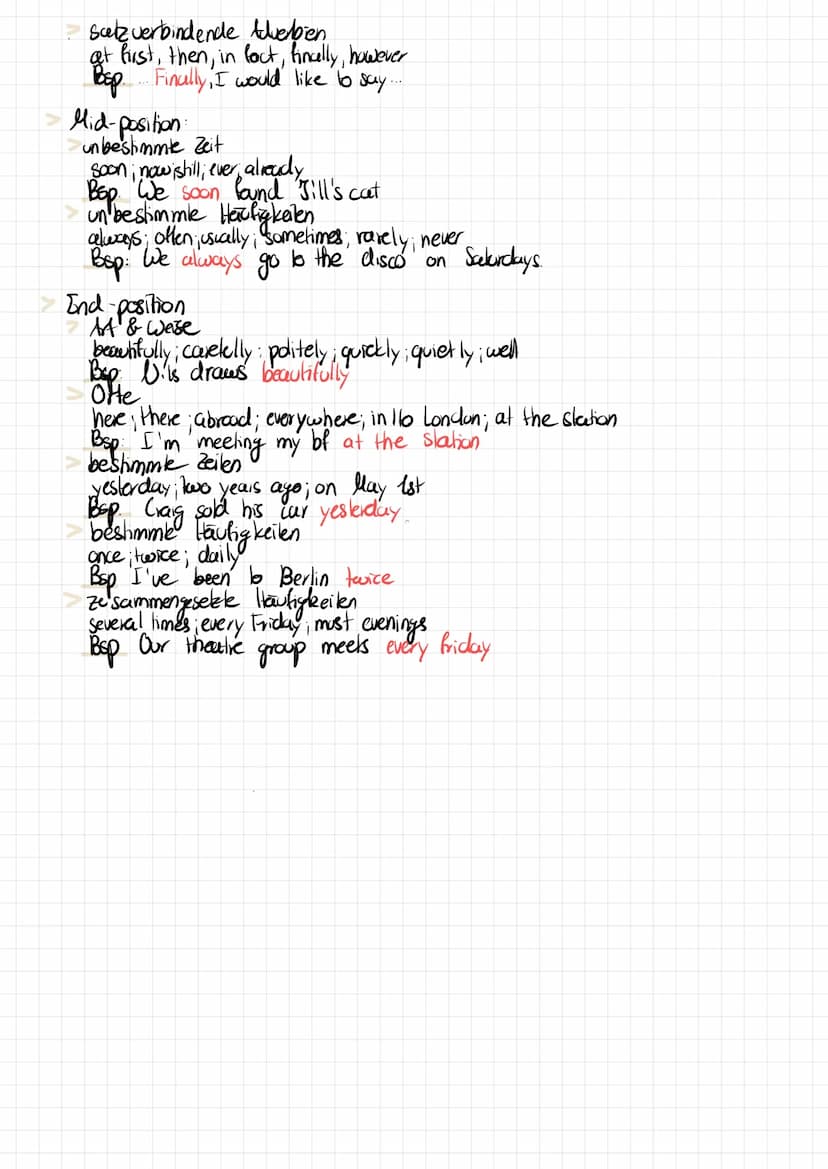 > Satzverbindende Adverbien
at first, then, in fact, finally, however
Bsp. ... Finally, I would like to say ...
> Mid-position:
> unbestimmte Zeit
soon; now; still; ever; already
Bsp. We soon found Jill's cat
> unbestimmte Häufigkeiten
always; often; usually; sometimes; rarely; never
Bsp: We always go to the disco on Saturdays.
> End-position
> Art & Weise
beautifully; carefully; politely; quickly; quietly; well
Bsp: Nils draws beautifully
> Orte
here; there; abroad; everywhere; in/to London; at the station
Bsp: I'm meeting my bf at the station
> bestimmte Zeiten
yesterday; two years ago; on May 1st
Bsp. Craig sold his car yesterday.
> bestimmte Häufigkeiten
once; twice; daily
Bsp I've been to Berlin twice
> zusammengesetzte Häufigkeiten
several times; every Friday; most evenings
Bsp Our theatre group meets every friday